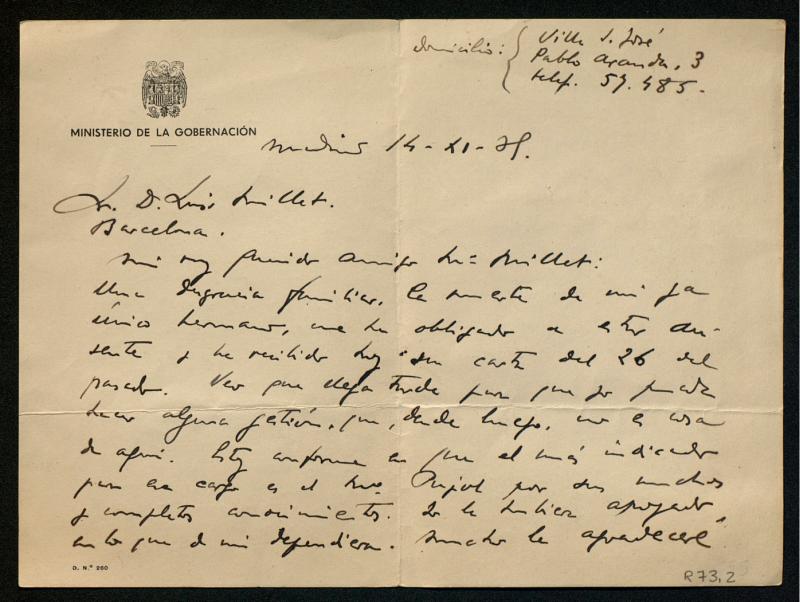 domicilio: Villa S. José
Pablo Aranda, 3
telef. 57.485.
MINISTERIO DE LA GOBERNACIÓN
Madrid 14-XI-39.
Sr. D. Luis Millet.
Barcelona.
Mi muy querido amigo Sr. Millet:
Una desgracia familiar, la muerte de mi ya
único hermano, me ha obligado a estar au-
sente y he recibido hoy su carta del 26 del
pasado. Veo que llega tarde para que yo pueda
hacer alguna gestión, que, desde luego, no es cosa
de aquí. Estoy conforme en que el más indicado
para ese cargo es el Mro Pujol por sus muchos
y completos conocimientos. Yo le hubiera apoyado,
en lo que de mi dependiera. Mucho le agradeceré
D. N.º 260
R 73,2